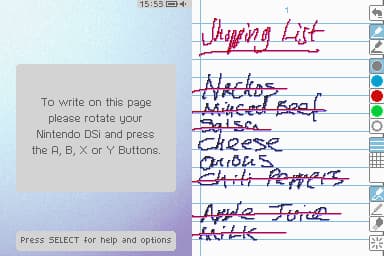 15:53
To write on this page
please rotate your
Nintendo DSi and press
the A, B, X or Y Buttons.
Press SELECT for help and options
1
Shopping List
Nachos
Minced Beef
Salsa
Cheese
Onions
Chili Peppers
Apple Juice
Milk